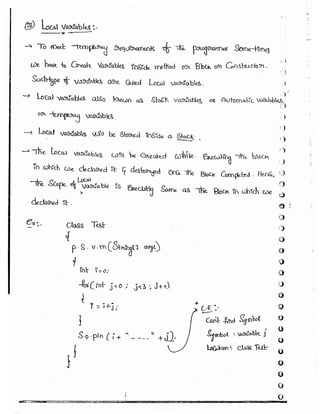 Local Variables :-
→ To meet temporary requirements of the programmer Some-times
we have to Create Variables inside method or Block or Constructor.
Such type of variables are called Local variables.
→ Local variables also known as Stack variables or Automatic variables
or temporary variables
→ Local variables will be Stored inside a Stack.
→ The Local variables will be Created while Executing the block
in which we declared it & destroyed once the Block Completed. Hence,
the Scope of Local variable is Exactly Same as the Block in which we
declared it.
Ex:- class Test
{
p. s. v. m (String[] args)
{
int i=0;
for(int j=0 ; j<3 ; j++)
{
i = i+j;
}
S.o.pln ( i + " ---- " + j );
}
}
C.E :-
Can't find Symbol
Symbol : variable j
Location : class Test